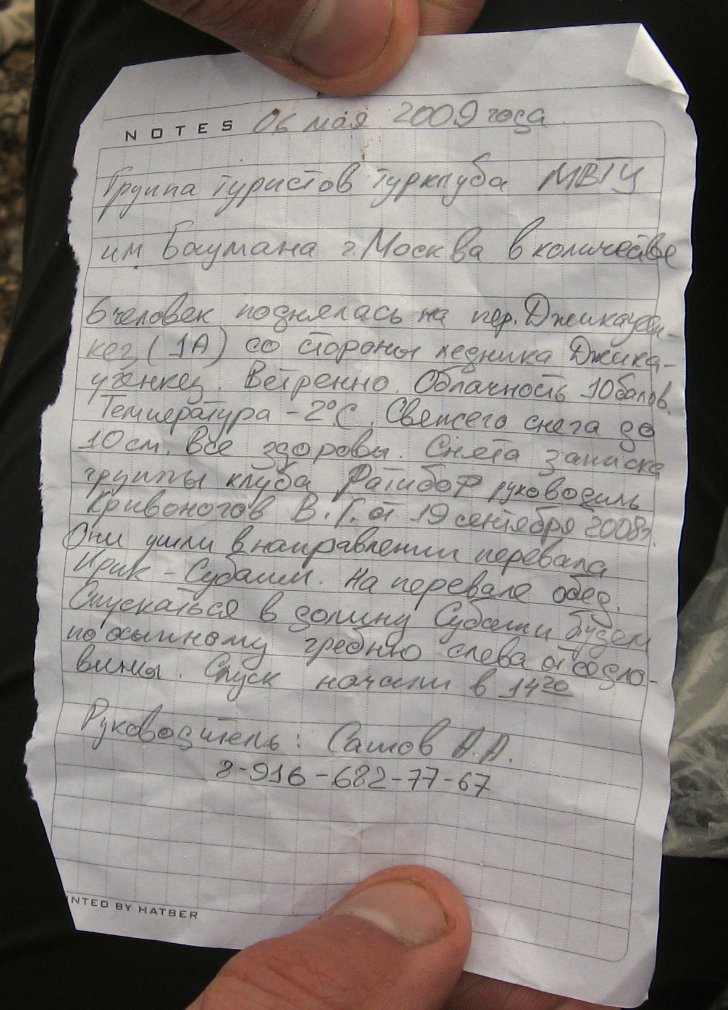 NOTES 06 мая 2009 года.
Группа туристов турклуба МВТУ
им Баумана г. Москва в количестве
6 человек поднялась на пер. Джикауген-
кез (1А) со стороны ледника Джика-
угенкез. Ветренно. Облачность 10 балов.
Температура -2°С. Свежего снега до
10 см. Все здоровы. Снята записка
группы клуба Ратибор руководиль
Кривоногов В.Г. от 19 сентября 2008г.
Они ушли в направлении перевала
Ирик-Субаши. На перевале обед.
Спускаться в долину Субаши будем
по осыпному гребню слева от седло-
вины. Спуск начали в 14 20
Руководитель: Сашов А.А.
8-916-682-77-67
NTED BY HATBER